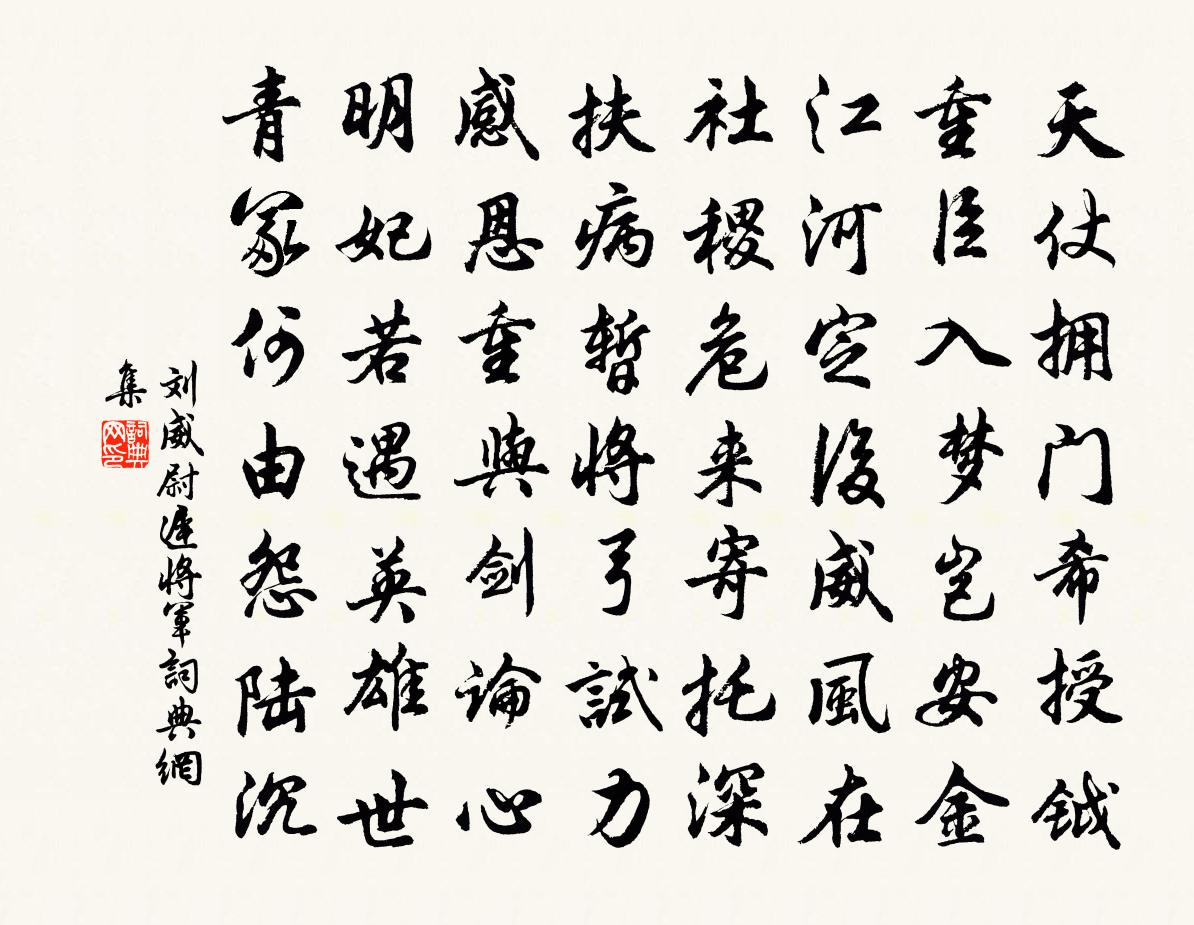 天仗拥门希授钺
重臣入梦岂安金
江河定後威風在
社稷危来寄托深
扶病暂将弓試力
感恩重與剑論心
明妃若遇英雄世
青冢何由怨陆沉
刘威尉遲将軍詞典網
集
詞典
网印